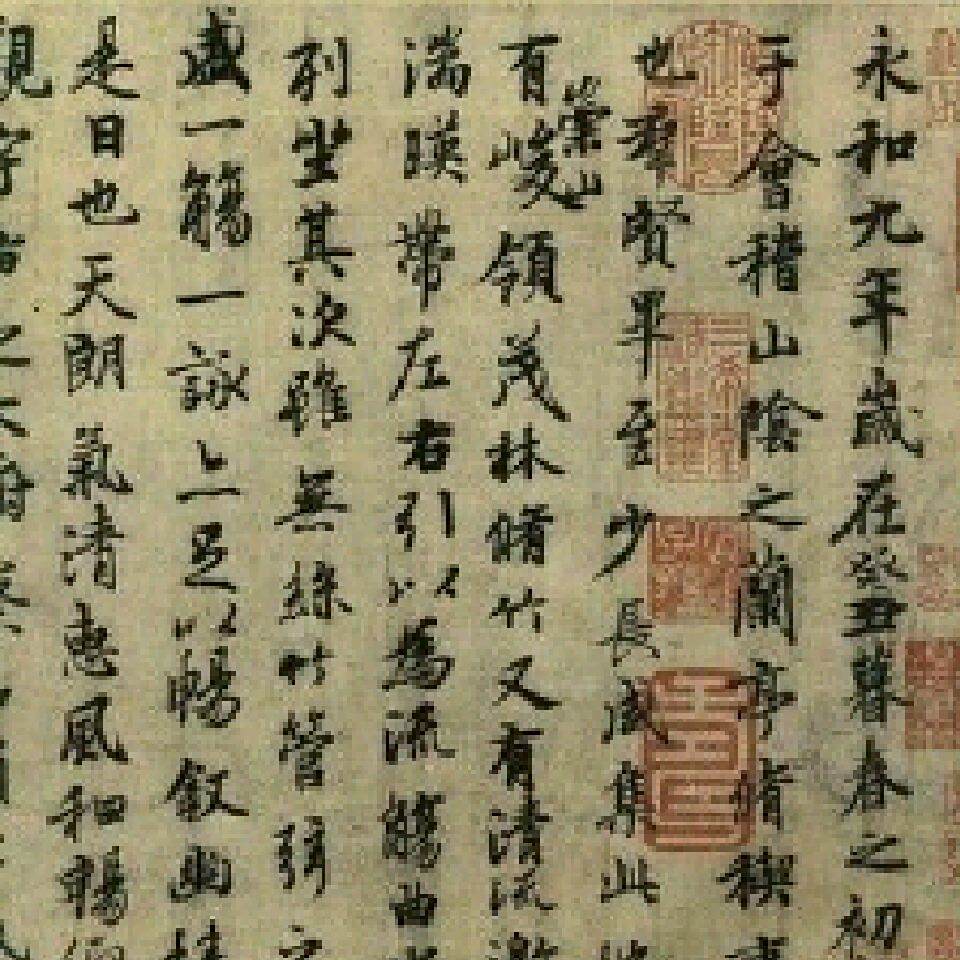 永和九年歲在癸丑暮春之初
于會稽山陰之蘭亭脩禊事
也羣賢畢至少長咸集此地
有崇山峻領茂林脩竹又有清流激
湍暎帶左右引以為流觴曲水
列坐其次雖無絲竹管弦之
盛一觴一詠亦足以暢叙幽情
是日也天朗氣清惠風和暢仰
觀宇宙之大俯察品類之盛